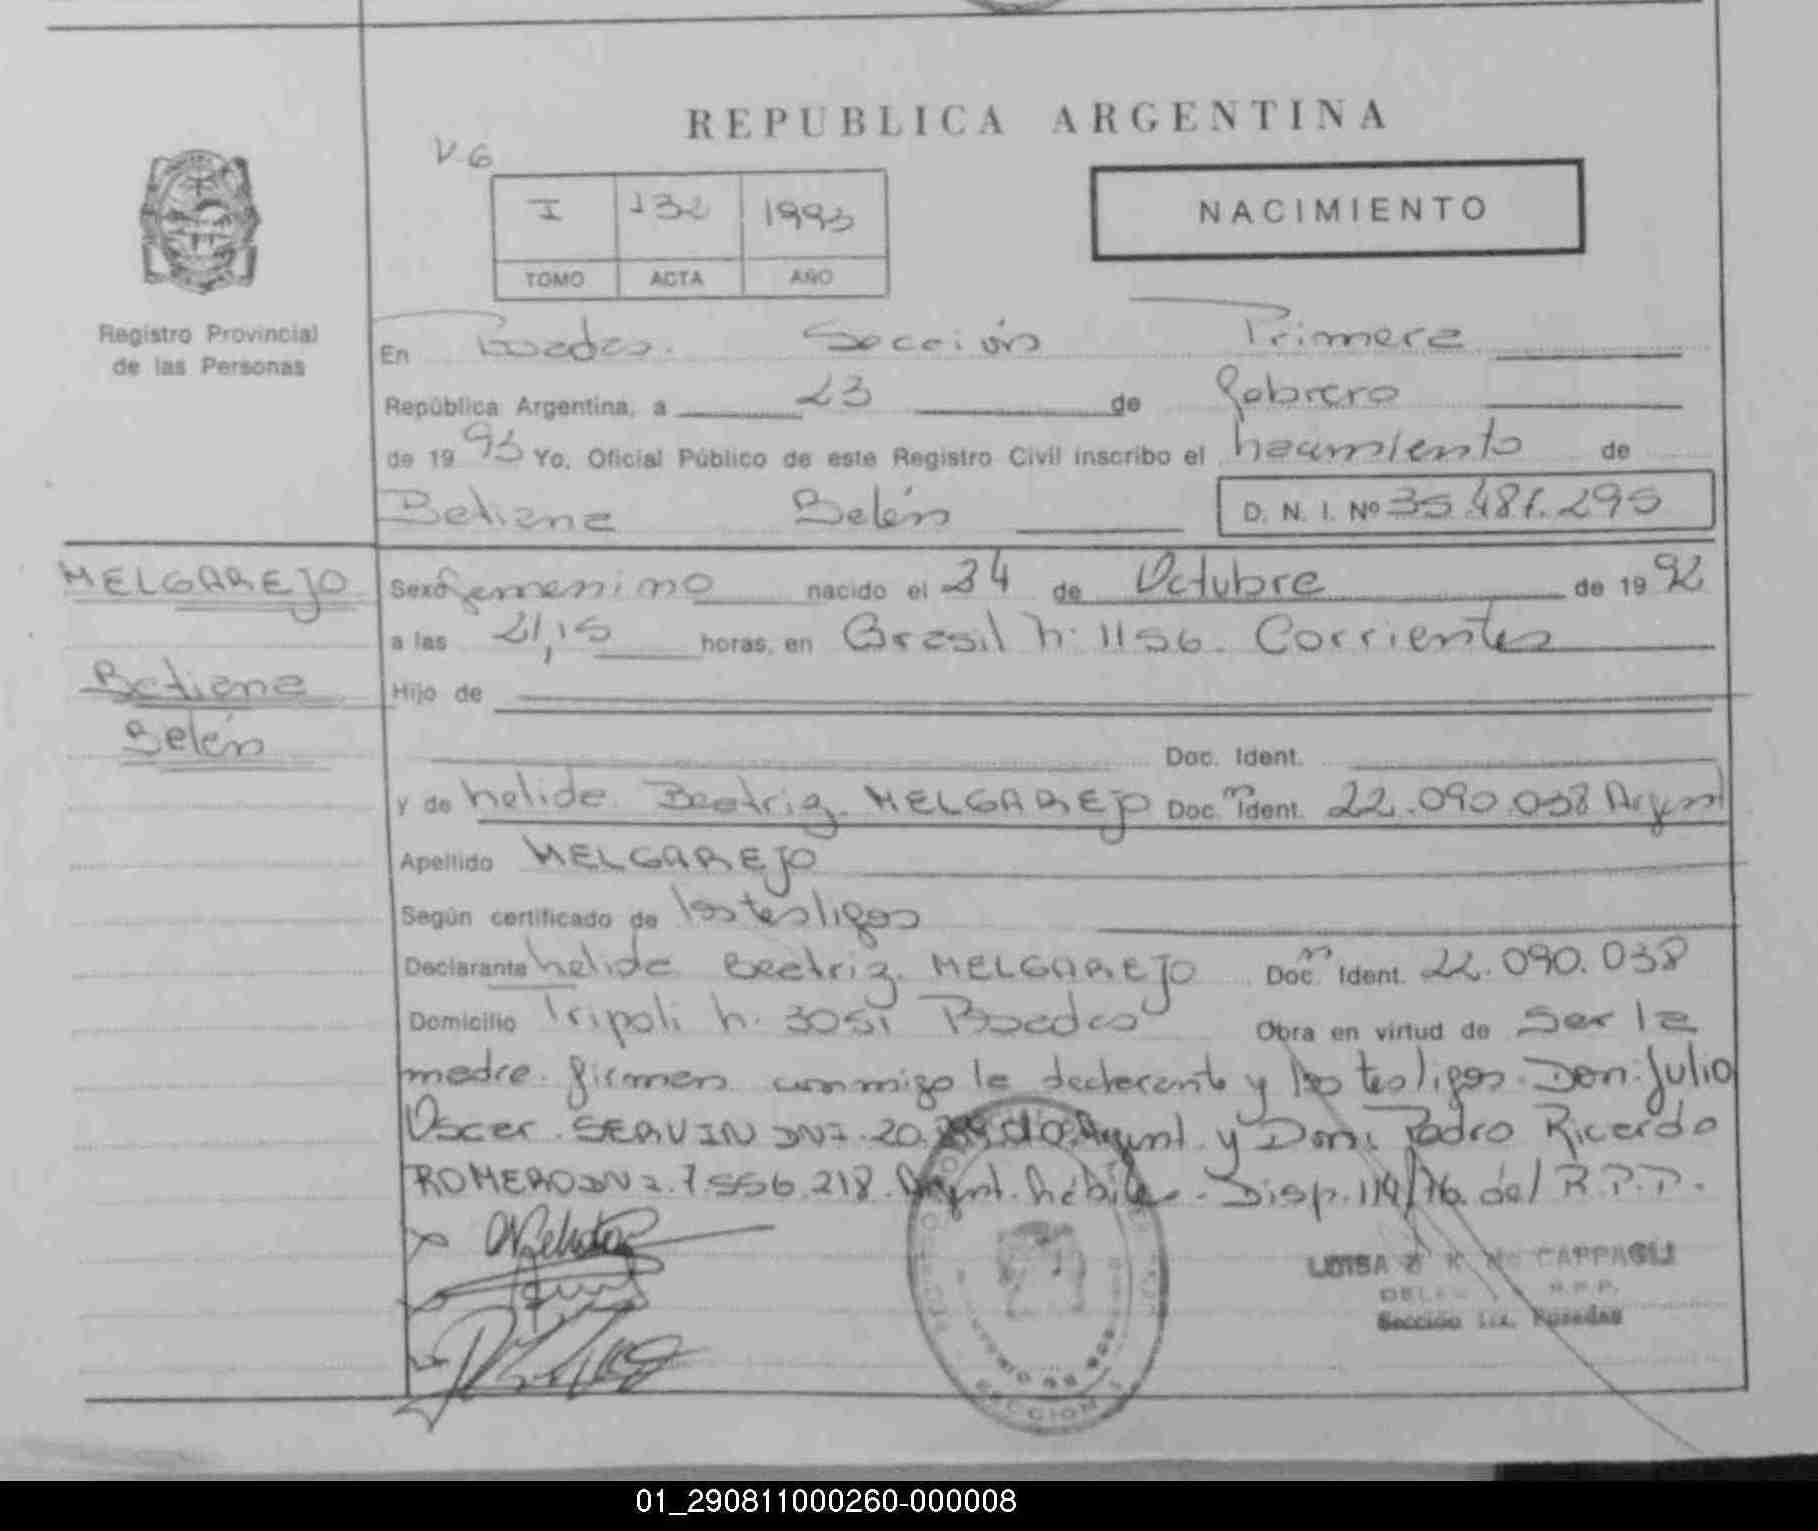 REPUBLICA ARGENTINA
V-6
NACIMIENTO
I 132 1993
TOMO ACTA AÑO
Registro Provincial
de las Personas
En Posadas. Sección Primera
República Argentina, a 23 de febrero
de 19 93 Yo, Oficial Público de este Registro Civil inscribo el nacimiento de
Betiana Belén D. N. I. Nº 35.481.295
MELGAREJO
Betiana
Belén
Sexo femenino nacido el 24 de Octubre de 19 92
a las 21,15 horas, en Brasil n. 1156. Corrientes
Hijo de
Doc. Ident.
y de Nelida Beatriz MELGAREJO Doc. Ident. 22.090.038 Argent
Apellido MELGAREJO
Según certificado de los testigos
Declarante Nelida Beatriz MELGAREJO Doc. Ident. 22.090.038
Domicilio Tripoli n. 3051 Posadas Obra en virtud de ser la
madre. firman conmigo la declarante y los testigos. Don Julio
Oscar SERVIN DNI. 20. Argent. y Don Pedro Ricardo
ROMERO DNI. 7.556.218. Argent. hábiles. Disp. 114/76 del R.P.P.
LUISA CAPPAGLI
R.P.P.
Sección 1ra. Posadas
SECCION 1
01_290811000260-000008